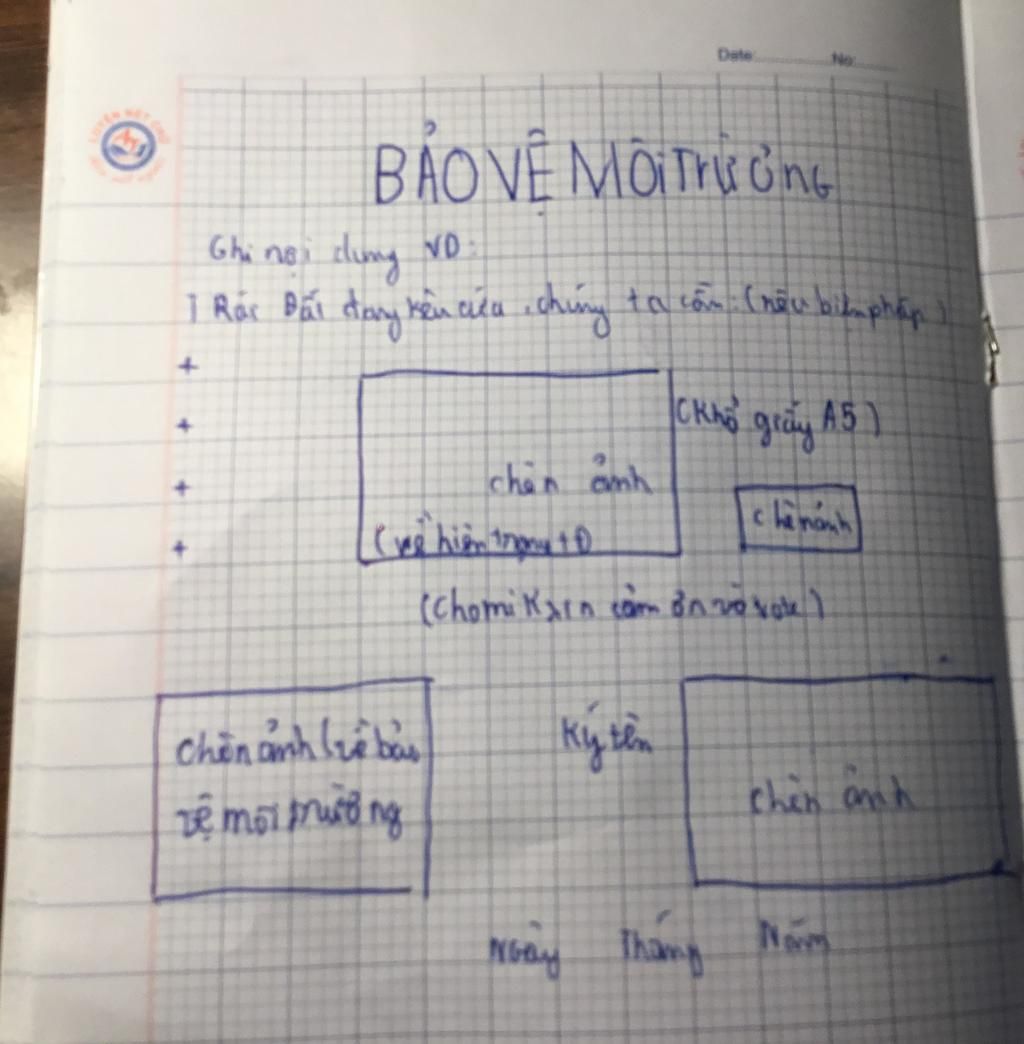 Date: No:
LUYỆN NÉT CHỮ
BẢO VỆ MÔI TRƯỜNG
Ghi nội dung VD:
Đất đang kêu cứu, chúng ta cần: (nêu biện pháp)
+
+
+
+
(Khổ giấy A5)
chèn ảnh
chèn ảnh
(về hiện trạng
(Cho mik xin cảm ơn và
Chèn ảnh (về bảo
vệ môi trường
Ký tên
chèn ảnh
Ngày Tháng Năm